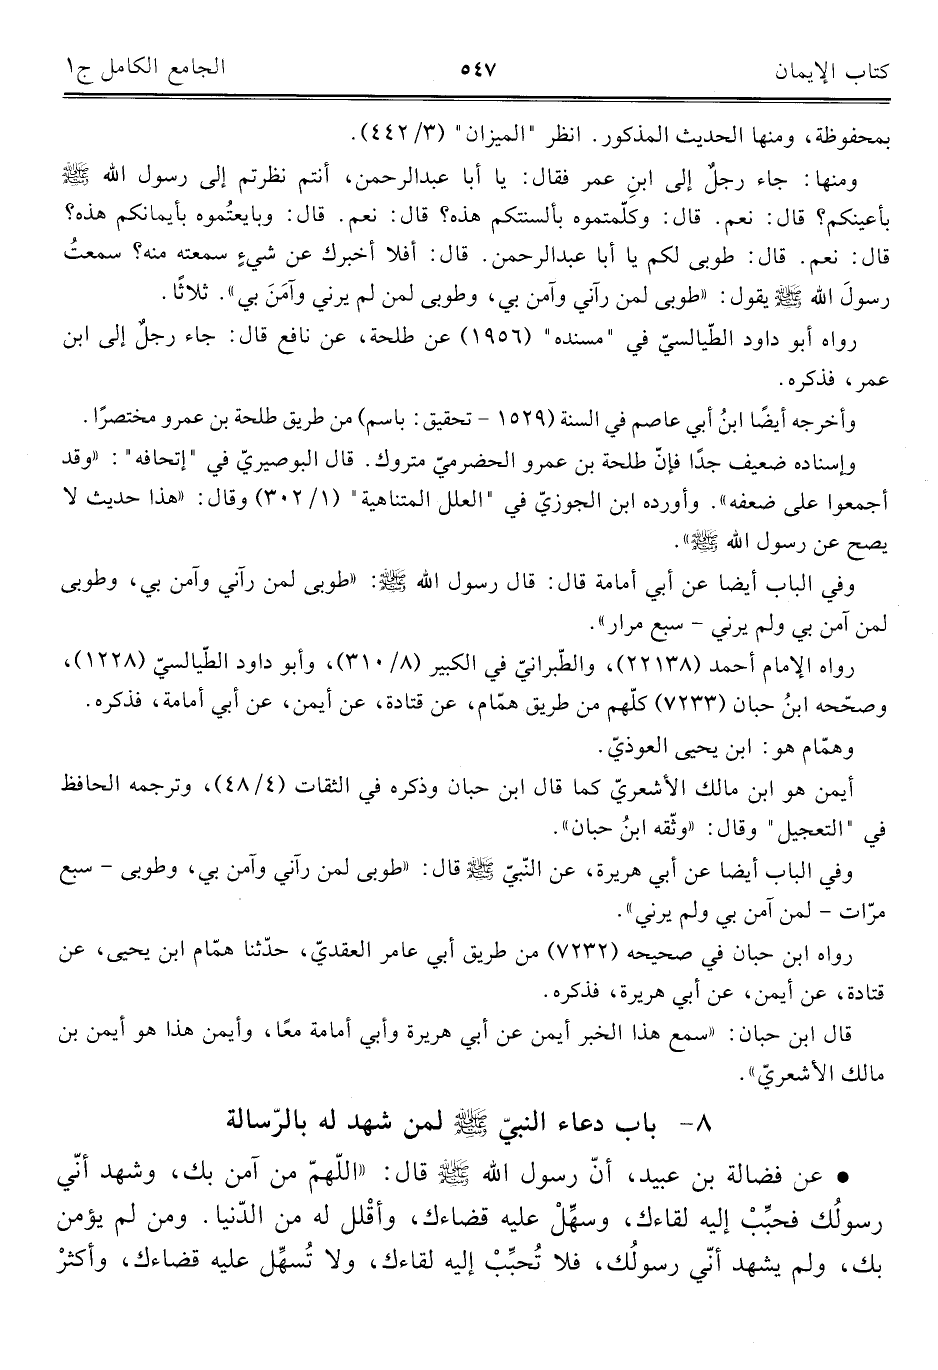 كتاب الإيمان ٥٤٧ الجامع الكامل ج١
بمحفوظة، ومنها الحديث المذكور. انظر "الميزان" (٣/ ٤٤٢).
ومنها: جاء رجلٌ إلى ابنِ عمر فقال: يا أبا عبدالرحمن، أنتم نظرتم إلى رسول الله ﷺ
بأعينكم؟ قال: نعم. قال: وكلّمتموه بألسنتكم هذه؟ قال: نعم. قال: وبايعتُموه بأيمانكم هذه؟
قال: نعم. قال: طوبى لكم يا أبا عبدالرحمن. قال: أفلا أخبرك عن شيءٍ سمعته منه؟ سمعتُ
رسولَ الله ﷺ يقول: «طوبى لمن رآني وآمن بي، وطوبى لمن لم يرني وآمَنَ بي». ثلاثًا.
رواه أبو داود الطّيالسيّ في "مسنده" (١٩٥٦) عن طلحة، عن نافع قال: جاء رجلٌ إلى ابن
عمر، فذكره.
وأخرجه أيضًا ابنُ أبي عاصم في السنة (١٥٢٩ - تحقيق: باسم) من طريق طلحة بن عمرو مختصرًا.
وإسناده ضعيف جدًا فإنّ طلحة بن عمرو الحضرميّ متروك. قال البوصيريّ في "إتحافه": «وقد
أجمعوا على ضعفه». وأورده ابن الجوزيّ في "العلل المتناهية" (١/ ٣٠٢) وقال: «هذا حديث لا
يصح عن رسول الله ﷺ».
وفي الباب أيضا عن أبي أمامة قال: قال رسول الله ﷺ: «طوبى لمن رآني وآمن بي، وطوبى
لمن آمن بي ولم يرني - سبع مرار».
رواه الإمام أحمد (٢٢١٣٨)، والطّبرانيّ في الكبير (٨/ ٣١٠)، وأبو داود الطّيالسيّ (١٢٢٨)،
وصحّحه ابنُ حبان (٧٢٣٣) كلّهم من طريق همّام، عن قتادة، عن أيمن، عن أبي أمامة، فذكره.
وهمّام هو: ابن يحيى العوذيّ.
أيمن هو ابن مالك الأشعريّ كما قال ابن حبان وذكره في الثقات (٤/ ٤٨)، وترجمه الحافظ
في "التعجيل" وقال: «وثّقه ابنُ حبان».
وفي الباب أيضا عن أبي هريرة، عن النّبيّ ﷺ قال: «طوبى لمن رآني وآمن بي، وطوبى - سبع
مرّات - لمن آمن بي ولم يرني».
رواه ابن حبان في صحيحه (٧٢٣٢) من طريق أبي عامر العقديّ، حدّثنا همّام ابن يحيى، عن
قتادة، عن أيمن، عن أبي هريرة، فذكره.
قال ابن حبان: «سمع هذا الخبر أيمن عن أبي هريرة وأبي أمامة معًا، وأيمن هذا هو أيمن بن
مالك الأشعريّ».
٨- باب دعاء النبيّ ﷺ لمن شهد له بالرّسالة
• عن فضالة بن عبيد، أنّ رسول الله ﷺ قال: «اللّهمّ من آمن بك، وشهد أنّي
رسولُك فحبِّبْ إليه لقاءك، وسهِّلْ عليه قضاءك، وأقْلل له من الدّنيا. ومن لم يؤمن
بك، ولم يشهد أنّي رسولُك، فلا تُحبِّبْ إليه لقاءك، ولا تُسهِّل عليه قضاءك، وأكثرْ